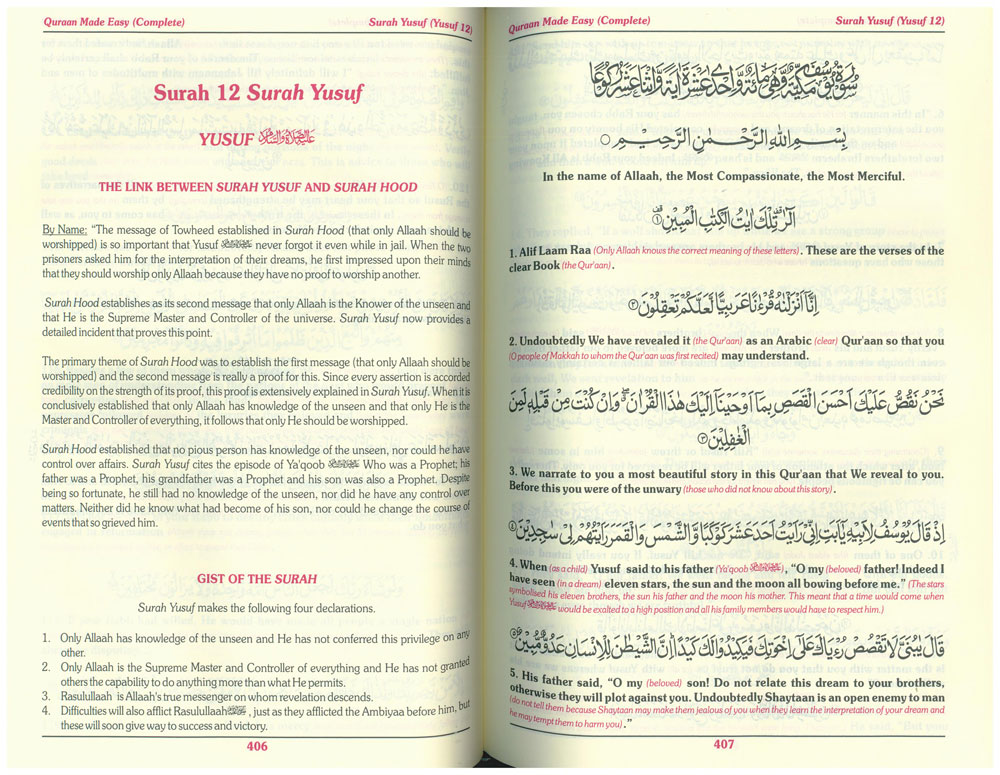 Quraan Made Easy (Complete)
Surah Yusuf (Yusuf 12)
Surah 12 Surah Yusuf
YUSUF
THE LINK BETWEEN SURAH YUSUF AND SURAH HOOD
By Name: “The message of Towheed established in Surah Hood (that only Allaah should be
worshipped) is so important that Yusuf never forgot it even while in jail. When the two
prisoners asked him for the interpretation of their dreams, he first impressed upon their minds
that they should worship only Allaah because they have no proof to worship another.
Surah Hood establishes as its second message that only Allaah is the Knower of the unseen and
that He is the Supreme Master and Controller of the universe. Surah Yusuf now provides a
detailed incident that proves this point.
The primary theme of Surah Hood was to establish the first message (that only Allaah should be
worshipped) and the second message is really a proof for this. Since every assertion is accorded
credibility on the strength of its proof, this proof is extensively explained in Surah Yusuf. When it is
conclusively established that only Allaah has knowledge of the unseen and that only He is the
Master and Controller of everything, it follows that only He should be worshipped.
Surah Hood established that no pious person has knowledge of the unseen, nor could he have
control over affairs. Surah Yusuf cites the episode of Ya'qoob Who was a Prophet; his
father was a Prophet, his grandfather was a Prophet and his son was also a Prophet. Despite
being so fortunate, he still had no knowledge of the unseen, nor did he have any control over
matters. Neither did he know what had become of his son, nor could he change the course of
events that so grieved him.
GIST OF THE SURAH
Surah Yusuf makes the following four declarations.
1. Only Allaah has knowledge of the unseen and He has not conferred this privilege on any
other.
2. Only Allaah is the Supreme Master and Controller of everything and He has not granted
others the capability to do anything more than what He permits.
3. Rasulullaah is Allaah's true messenger on whom revelation descends.
4. Difficulties will also afflict Rasulullaah , just as they afflicted the Ambiyaa before him, but
these will soon give way to success and victory.
406
Quraan Made Easy (Complete)
Surah Yusuf (Yusuf 12)
سُوْرَةُ يُوْسُفَ مَكِّيَّةٌ وَّهِيَ مِائَةٌ وَّاِحْدٰى عَشْرَةَ اٰيَةً وَّاثْنَا عَشَرَ رُكُوْعًا
بِسْمِ اللّٰهِ الرَّحْمٰنِ الرَّحِيْمِ
In the name of Allaah, the Most Compassionate, the Most Merciful.
الٓرٰ تِلْكَ اٰيٰتُ الْكِتٰبِ الْمُبِيْنِ ۝۱
1. Alif Laam Raa (Only Allaah knows the correct meaning of these letters). These are the verses of the
clear Book (the Qur'aan).
اِنَّآ اَنْزَلْنٰهُ قُرْءٰنًا عَرَبِيًّا لَّعَلَّكُمْ تَعْقِلُوْنَ ۝۲
2. Undoubtedly We have revealed it (the Qur'aan) as an Arabic (clear) Qur'aan so that you
(O people of Makkah to whom the Qur'aan was first recited) may understand.
نَحْنُ نَقُصُّ عَلَيْكَ اَحْسَنَ الْقَصَصِ بِمَآ اَوْحَيْنَآ اِلَيْكَ هٰذَا الْقُرْاٰنَ وَاِنْ كُنْتَ مِنْ قَبْلِهٖ لَمِنَ
الْغٰفِلِيْنَ ۝۳
3. We narrate to you a most beautiful story in this Qur'aan that We reveal to you.
Before this you were of the unwary (those who did not know about this story).
اِذْ قَالَ يُوْسُفُ لِاَبِيْهِ يٰٓاَبَتِ اِنِّيْ رَاَيْتُ اَحَدَ عَشَرَ كَوْكَبًا وَّالشَّمْسَ وَالْقَمَرَ رَاَيْتُهُمْ لِيْ سٰجِدِيْنَ ۝۴
4. When (as a child) Yusuf said to his father (Ya'qoob ), “O my (beloved) father! Indeed I
have seen (in a dream) eleven stars, the sun and the moon all bowing before me.” (The stars
symbolised his eleven brothers, the sun his father and the moon his mother. This meant that a time would come when
Yusuf would be exalted to a high position and all his family members would have to respect him.)
قَالَ يٰبُنَيَّ لَا تَقْصُصْ رُءْيَاكَ عَلٰٓى اِخْوَتِكَ فَيَكِيْدُوْا لَكَ كَيْدًا اِنَّ الشَّيْطٰنَ لِلْاِنْسَانِ عَدُوٌّ مُّبِيْنٌ ۝۵
5. His father said, “O my (beloved) son! Do not relate this dream to your brothers,
otherwise they will plot against you. Undoubtedly Shaytaan is an open enemy to man
(do not tell them because Shaytaan may make them jealous of you when they learn the interpretation of your dream and
he may tempt them to harm you).”
407